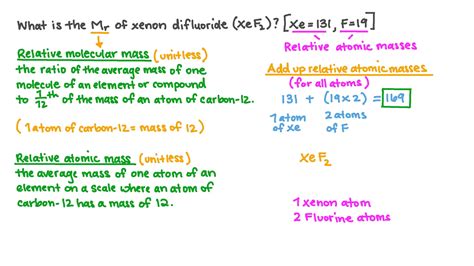 What is the Mr of xenon difluoride (XeF2)? [Xe=131, F=19]
Relative atomic masses
Relative molecular mass (unitless)
the ratio of the average mass of one
molecule of an element or compound
to 1/12th of the mass of an atom of carbon-12.
(1 atom of carbon-12 = mass of 12)
Relative atomic mass (unitless)
the average mass of one atom of an
element on a scale where an atom of
carbon-12 has a mass of 12.
Add up relative atomic masses
(for all atoms)
131 + (19x2) = 169
1 atom of Xe
2 atoms of F
XeF2
1 xenon atom
2 Fluorine atoms